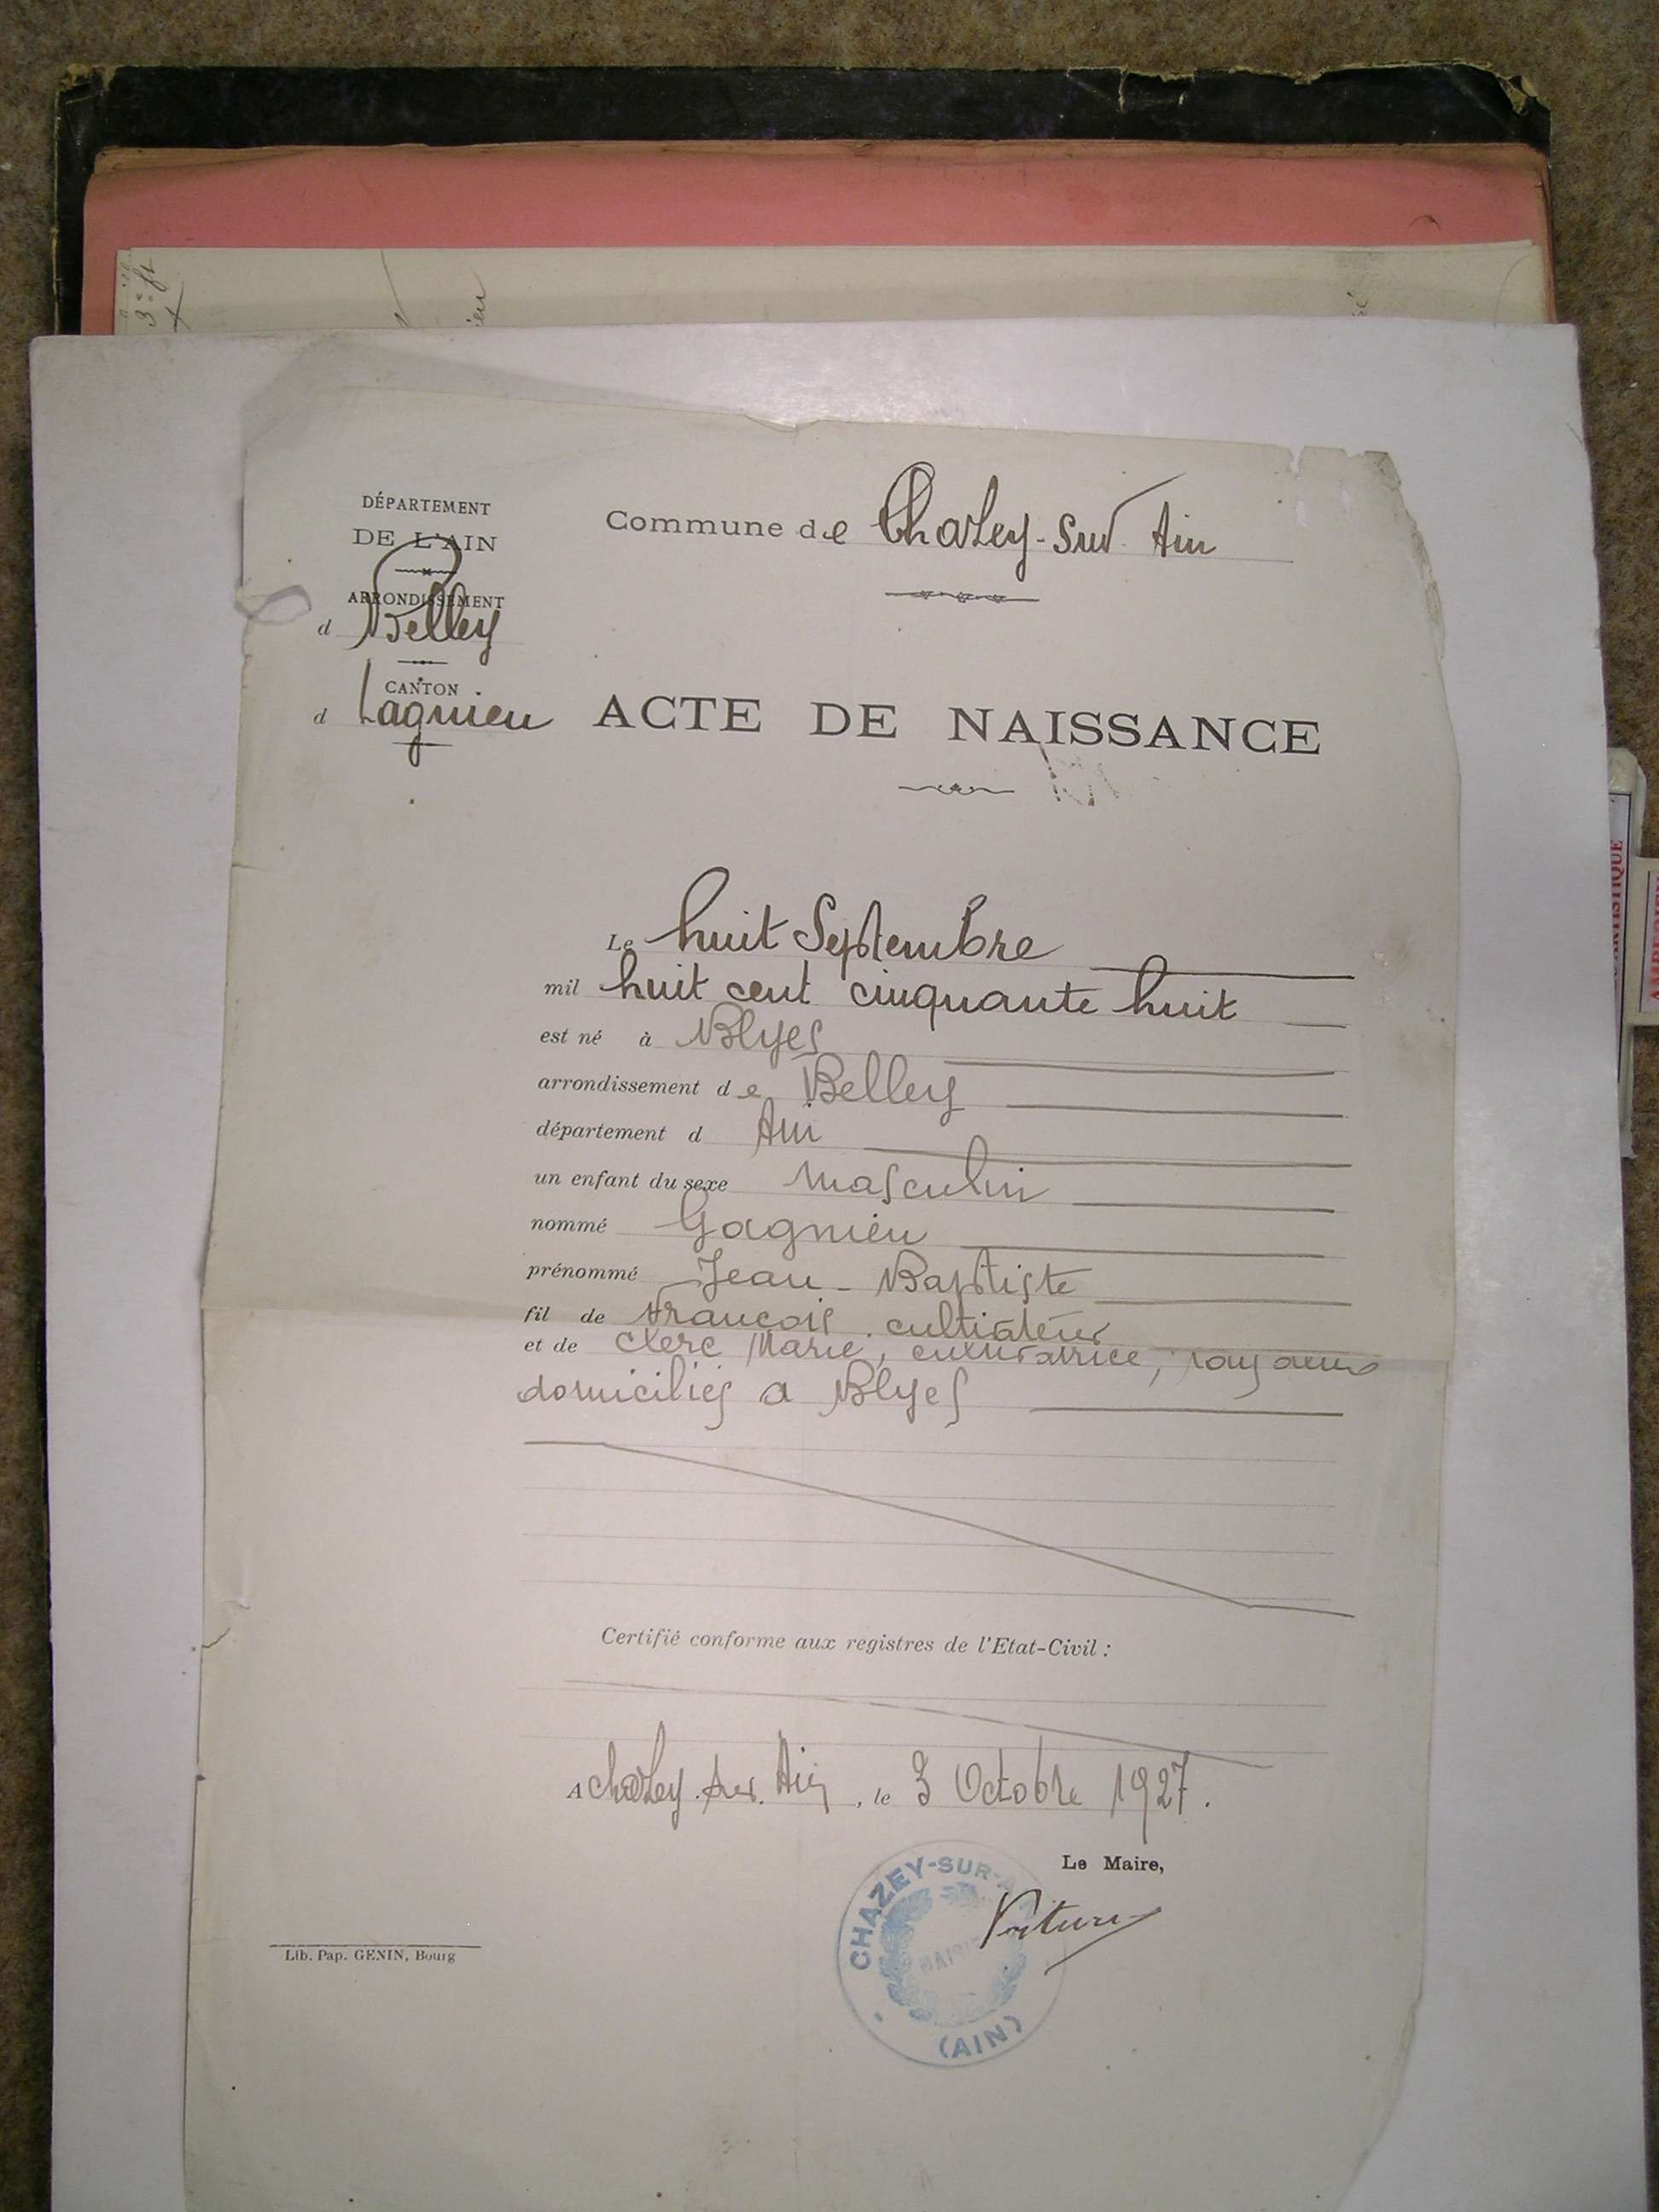 DÉPARTEMENT
DE L'AIN
ARRONDISSEMENT
d Belley
CANTON
d Lagnieu
Commune de Chazey-sur Ain
ACTE DE NAISSANCE
Le huit Septembre
mil huit cent cinquante huit
est né à Blyes
arrondissement de Belley
département d Ain
un enfant du sexe Masculin
nommé Gagnieu
prénommé Jean-Baptiste
fil de Francois cultivateur
et de Clerc Marie, cultivatrice,
domiciliés a Blyes
Certifié conforme aux registres de l'Etat-Civil :
A Chazey-sur-Ain, le 3 Octobre 1927.
Le Maire,
CHAZEY-SUR-A
MAIRIE
(AIN)
Lib. Pap. GENIN, Bourg